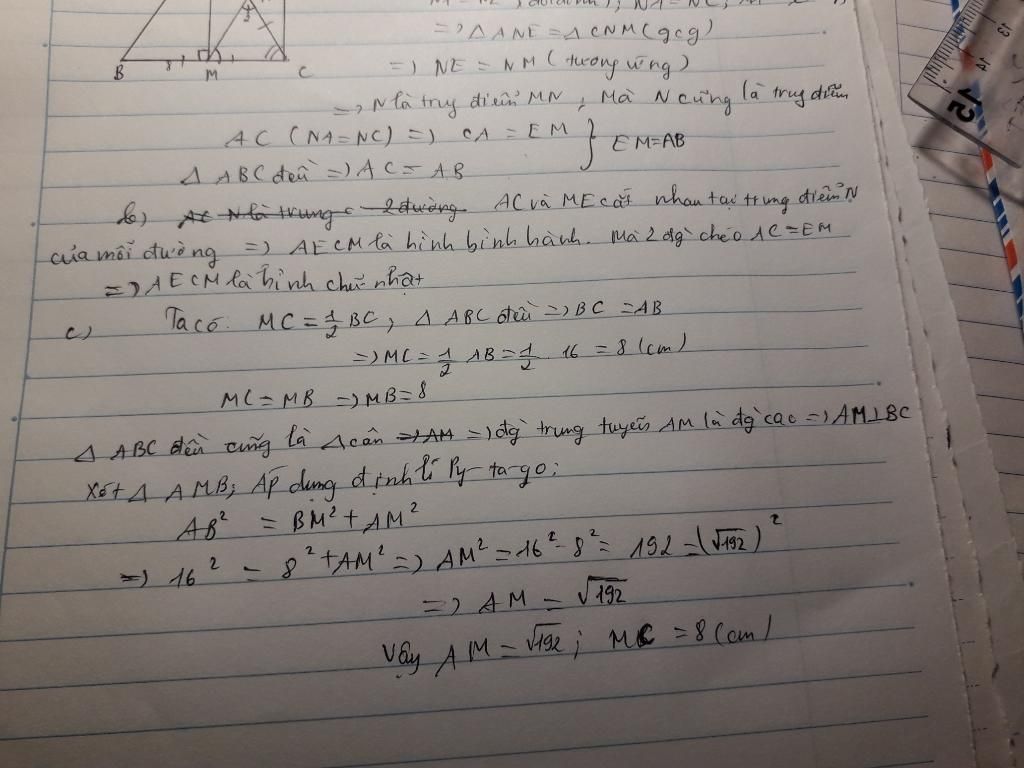 B M C
=> Δ ANE = Δ CNM (gcg)
=> NE = NM (tương ứng)
=> N là truy điểm MN, Mà N cũng là truy điểm
AC (NA=NC) => CA = EM } EM=AB
Δ ABC đều => AC = AB
b) AC N là trung 2 đường AC và ME cắt nhau tại trung điểm N
của mỗi đường => AECM là hình bình hành. Mà 2 đg chéo AC=EM
=> AECM là hình chữ nhật
c) Ta có: MC = 1/2 BC, Δ ABC đều => BC = AB
=> MC = 1/2 AB = 1/2 . 16 = 8 (cm)
MC = MB => MB = 8
Δ ABC đều cũng là Δ cân => AM => đg trung tuyến AM là đg cao => AM⊥BC
Xét Δ AMB; Áp dụng định lí Py-ta-go:
AB² = BM² + AM²
=> 16² = 8² + AM² => AM² = 16² - 8² = 192 = (√192)²
=> AM = √192
Vậy AM = √192; MC = 8 (cm)